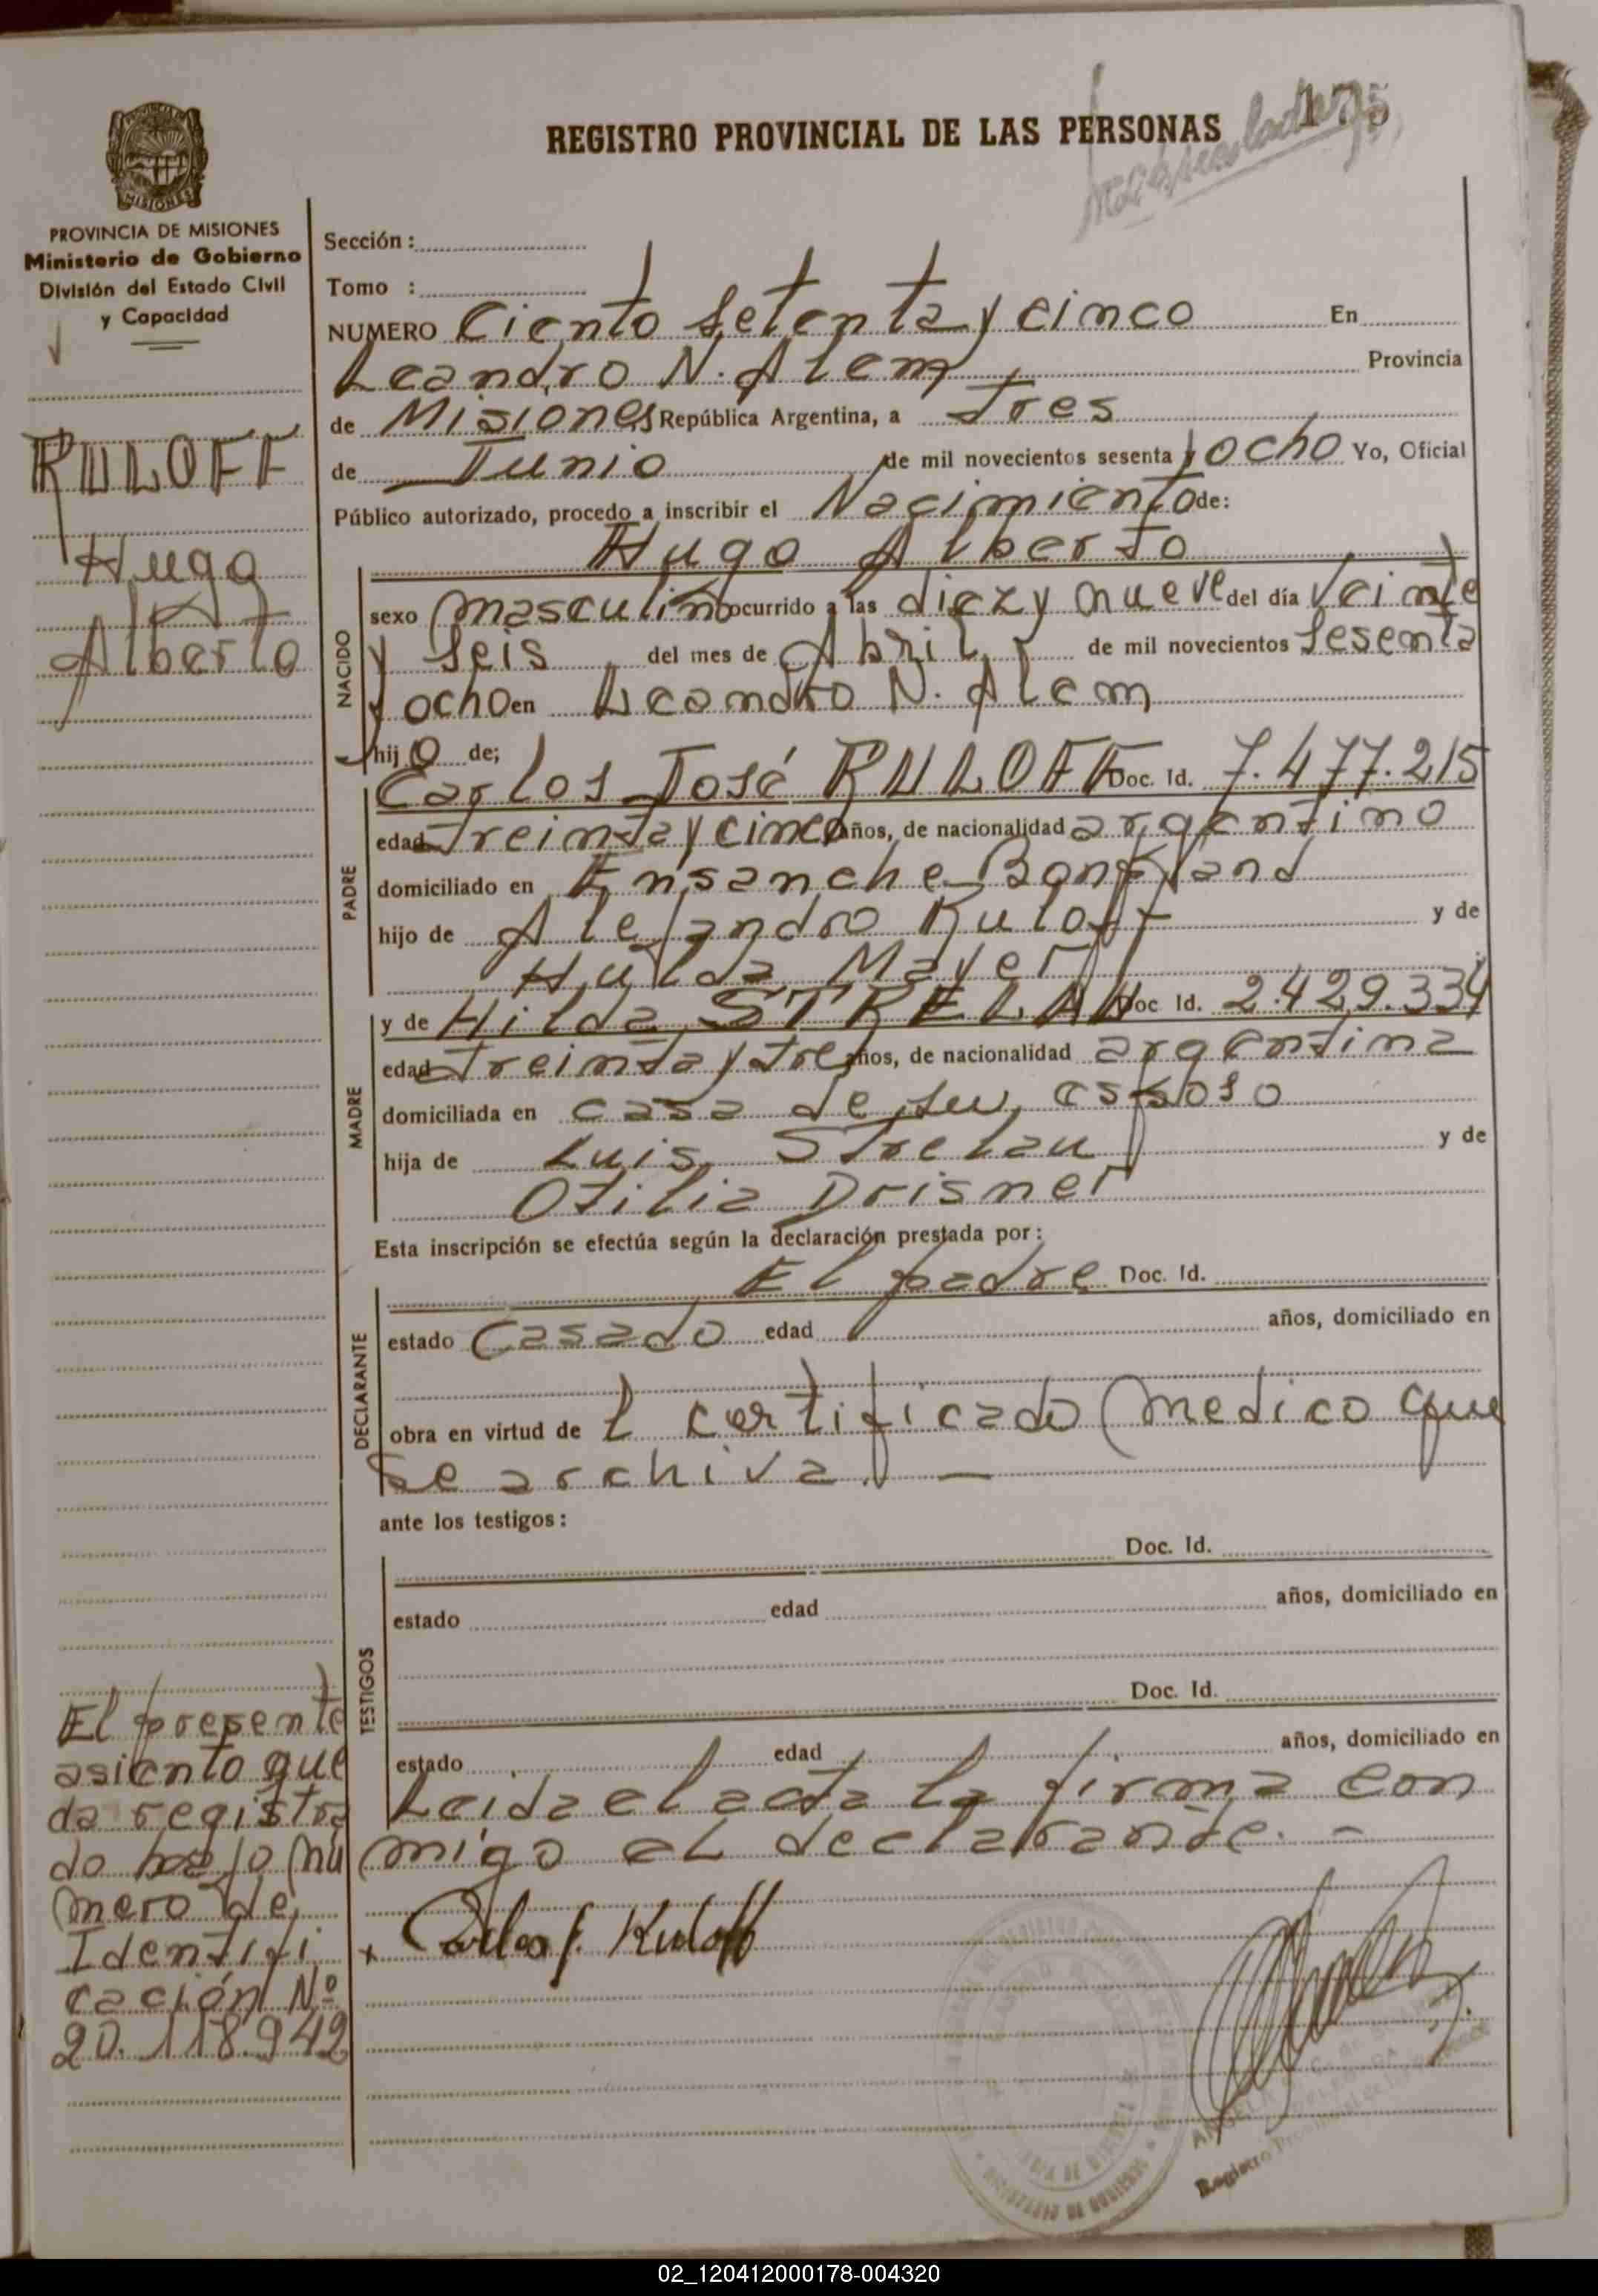 REGISTRO PROVINCIAL DE LAS PERSONAS
175
PROVINCIA DE MISIONES
Ministerio de Gobierno
División del Estado Civil
y Capacidad
RULOFF
Hugo
Alberto
Sección:
Tomo :
NUMERO Ciento setenta y cinco En
Leandro N. Alem Provincia
de Misiones República Argentina, a Tres
de Junio de mil novecientos sesenta y ocho Yo, Oficial
Público autorizado, procedo a inscribir el Nacimiento de:
Hugo Alberto
NACIDO
sexo masculino ocurrido a las diez y nueve del día veinte
y seis del mes de Abril de mil novecientos sesenta
y ocho en Leandro N. Alem
hijo de;
PADRE
Carlos José RULOFF Doc. Id. 7.477.215
edad treinta y cinco años, de nacionalidad argentino
domiciliado en Ensanche Bonpland
hijo de Alejandro Ruloff y de
Hulda Mayer
MADRE
y de Hilda STRELAU Doc Id. 2.429.334
edad treinta y tres años, de nacionalidad argentina
domiciliada en casa de su esposo
hija de Luis Strelau y de
Otilia Drisner
Esta inscripción se efectúa según la declaración prestada por:
DECLARANTE
El padre Doc. Id.
estado Casado edad años, domiciliado en
obra en virtud de l certificado medico que
se archiva. —
ante los testigos:
TESTIGOS
Doc. Id.
estado edad años, domiciliado en
Doc. Id.
estado edad años, domiciliado en
Leida el acta la firma con
migo el declarante. –
x Carlos J. Ruloff
El presente
asiento que
da registra
do bajo nú
mero de
Identifi
cación Nº
20.118.942
02_120412000178-004320